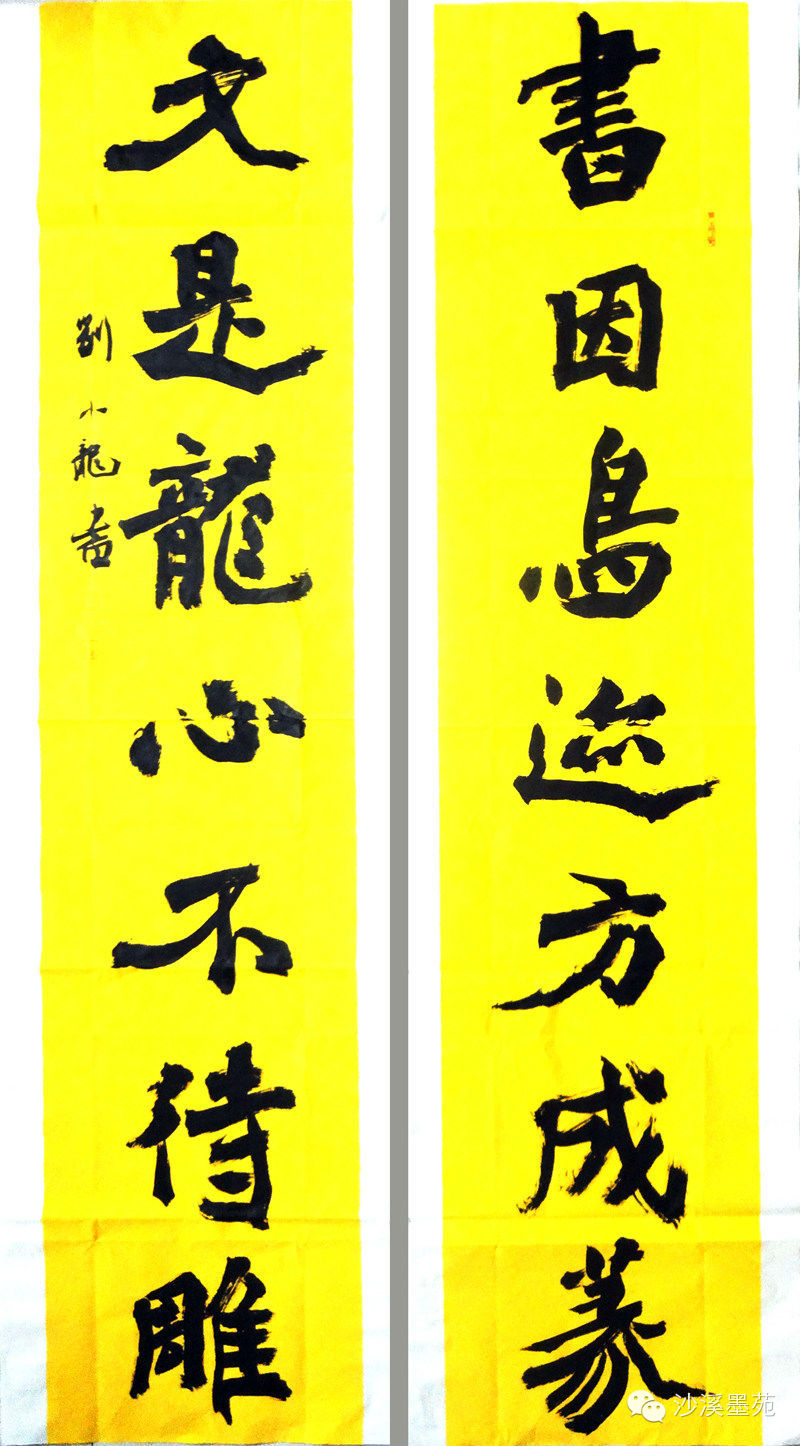 書因鳥迹方成篆
文是龍心不待雕
劉小龍書
沙溪墨苑